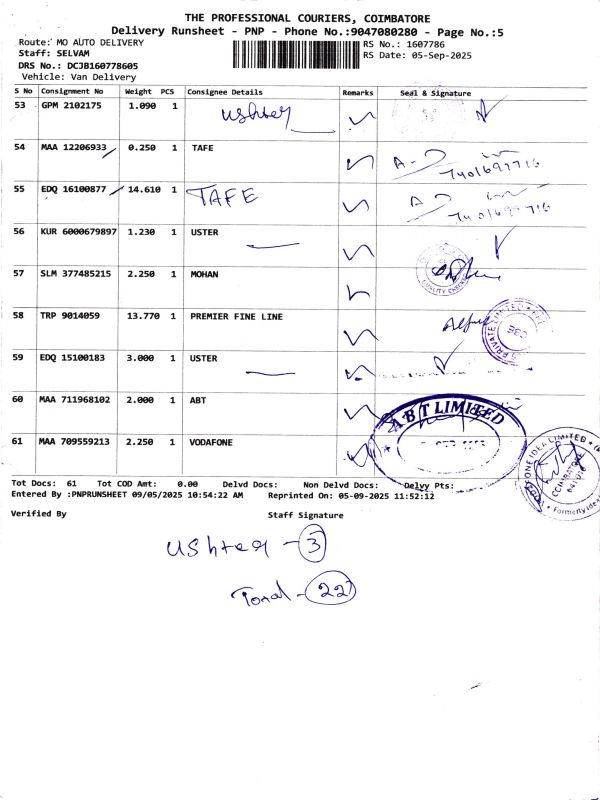 THE PROFESSIONAL COURIERS, COIMBATORE
Delivery Runsheet - PNP - Phone No.:9047080280 - Page No.:5
Route: MO AUTO DELIVERY
RS No.: 1607786
Staff: SELVAM
RS Date: 05-Sep-2025
DRS No.: DCJB160778605
Vehicle: Van Delivery
S No Consignment No Weight PCS Consignee Details Remarks Seal & Signature
53 GPM 2102175 1.090 1 Ushter
54 MAA 12206933 0.250 1 TAFE 7401697716
55 EDQ 16100877 14.610 1 TAFE 7401697716
56 KUR 6000679897 1.230 1 USTER
57 SLM 377485215 2.250 1 MOHAN
QUALITY
58 TRP 9014059 13.770 1 PREMIER FINE LINE
PRIVATE LIMITED
CBE
59 EDQ 15100183 3.000 1 USTER
60 MAA 711968102 2.000 1 ABT
ABT LIMITED
61 MAA 709559213 2.250 1 VODAFONE
IDEA LIMITED
COIMBATORE
Formerly Idea
Tot Docs: 61 Tot COD Amt: 0.00 Delvd Docs: Non Delvd Docs: Delvy Pts:
Entered By :PNPRUNSHEET 09/05/2025 10:54:22 AM Reprinted On: 05-09-2025 11:52:12
Verified By Staff Signature
Ushter - 3
Total - 22